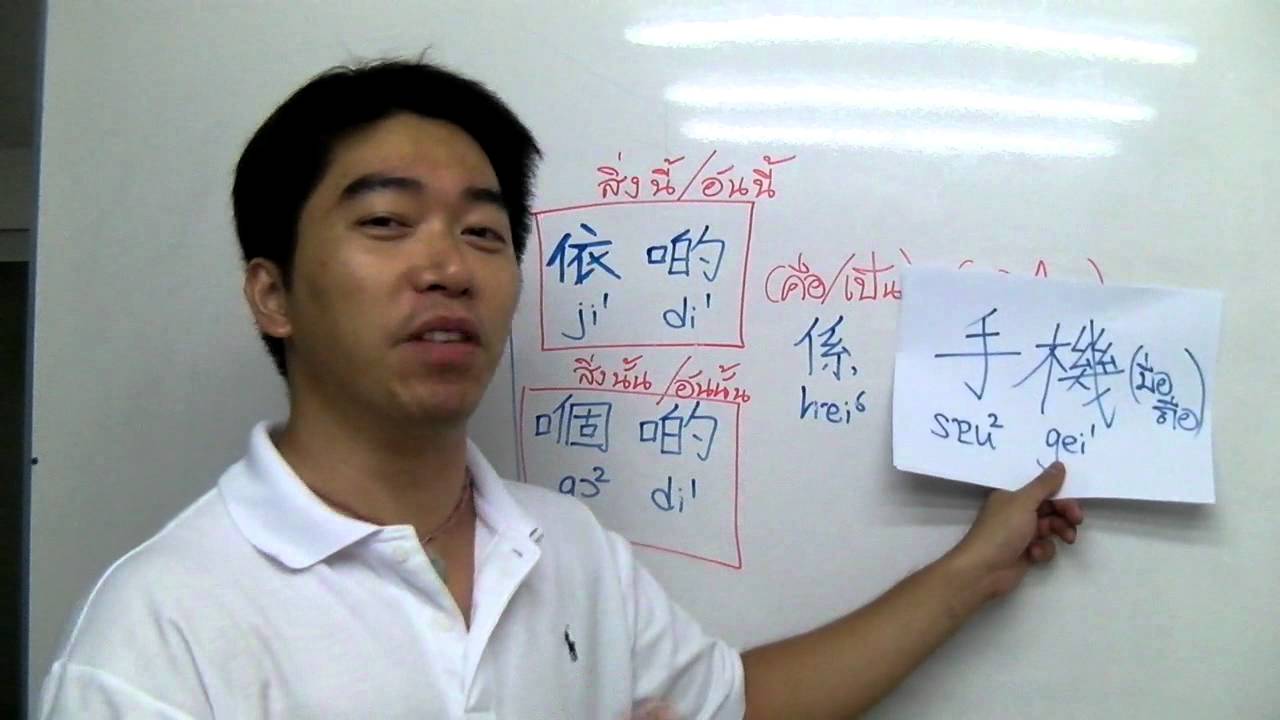 สิ่งนี้/อันนี้
依 啲
ji¹ di¹
สิ่งนั้น/อันนั้น
嗰 啲
gɔ² di¹
(คือ/เป็น)
係
hɐi⁶
手機 (มือถือ)
sɐu² gei¹